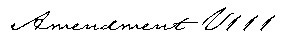 Amendment VIII